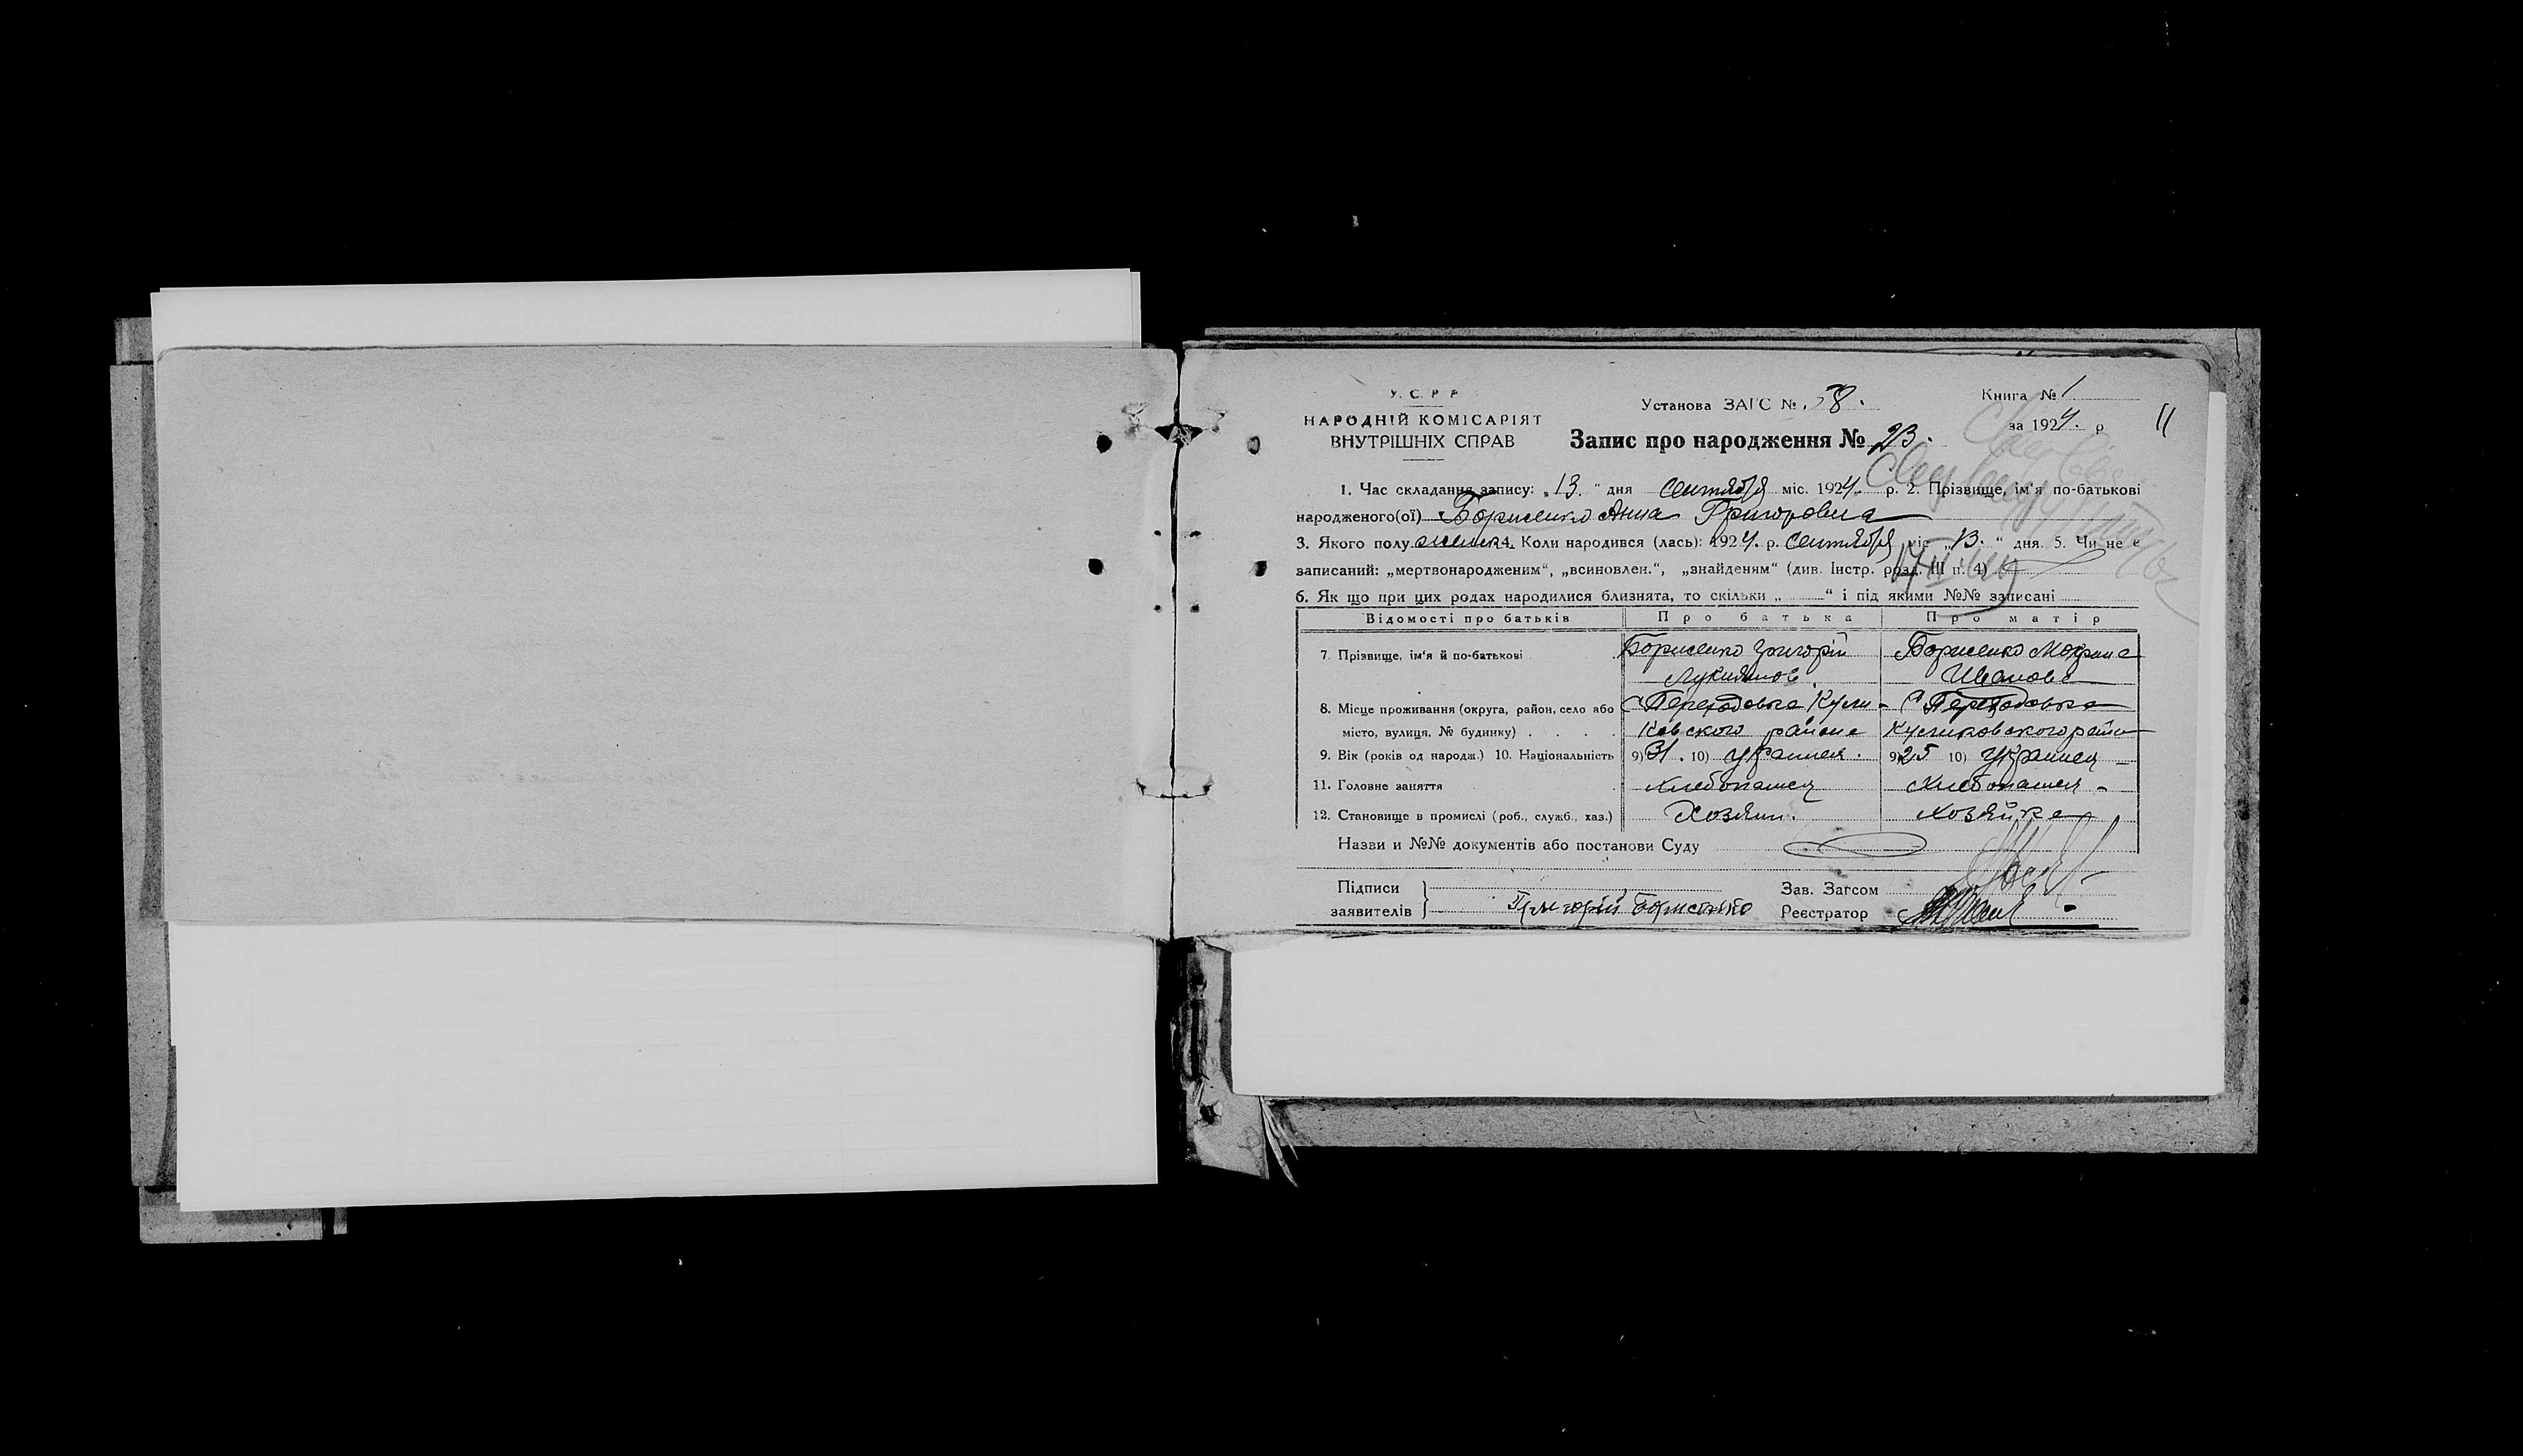 У. С. Р. Р.
НАРОДНІЙ КОМІСАРІЯТ
ВНУТРІШНІХ СПРАВ
Установа ЗАГС № 58.
Запис про народження № 23.
Книга № 1
за 1924. р
11
1. Час складання запису: „13.“ дня сентября міс. 1924. р. 2. Прізвище, ім'я по-батькові
народженого(ої) Борисенко Анна Григоровна
3. Якого полу женск. 4. Коли народився (лась): 1924. р. сентября міс „13.“ дня. 5. Чи не є
записаний: „мертвонародженим“, „всиновлен.“, „знайденям“ (див. Інстр. розд. III п. 4)
6. Як що при цих родах народилися близнята, то скільки „ “ і під якими №№ записані
Відомості про батьків Про батька Про матір
7. Прізвище, ім'я й по-батькові Борисенко Григорій Борисенко
Лукиянов. Иванова
8. Місце проживання (округа, район, село або
місто, вулиця, № будинку) . . . . ковского района Куликовского район
9. Вік (років од народж.) 10. Національність 9) 31. 10) Украинец. 9) 25 10) Украинец
11. Головне заняття Хлебопашец Хлебопашец -
12. Становище в промислі (роб., служб., хаз.) Хозяин. Хозяйка
Назви и №№ документів або постанови Суду
Підписи Зав. Загсом
заявителів Григорій Борисенко Реєстратор